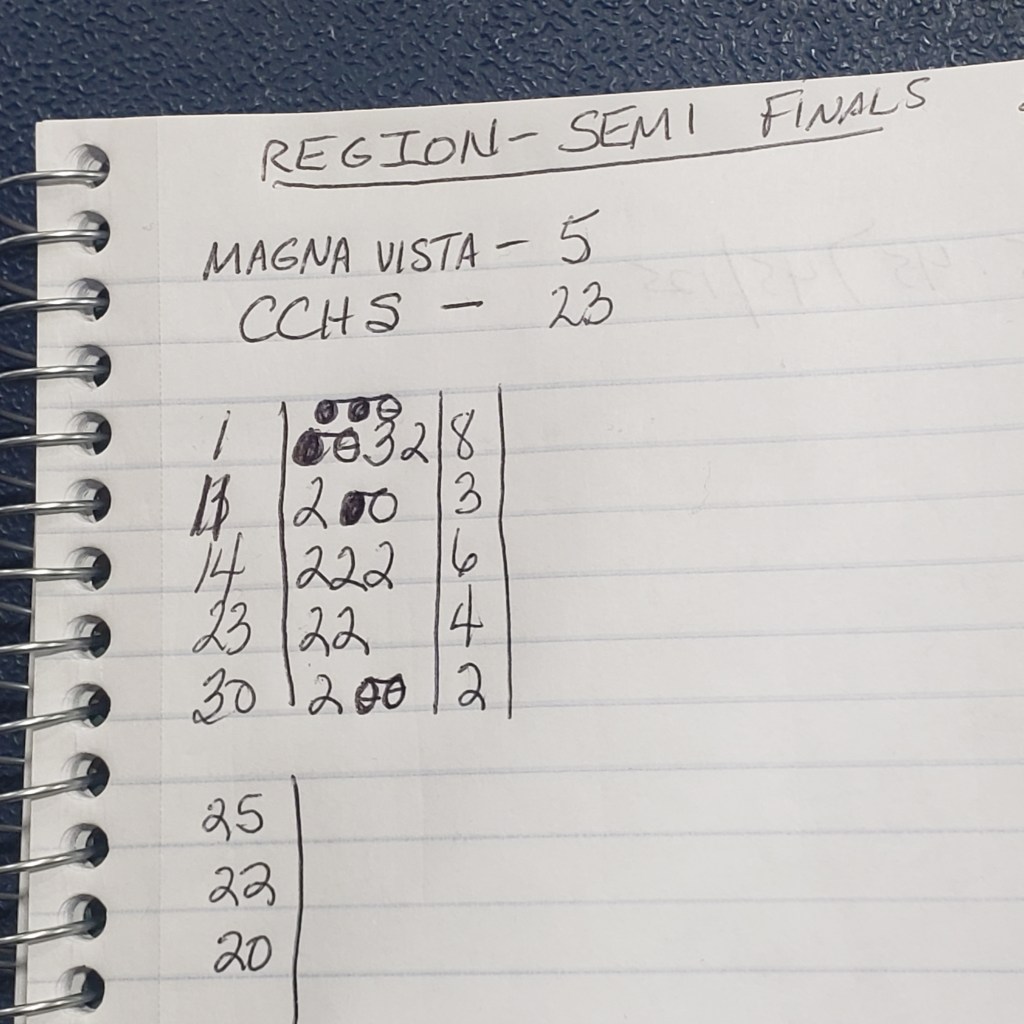 REGION - SEMI FINALS
MAGNA VISTA - 5
CCHS - 23
1 | ●●⊖ ●⊖32 | 8
11 | 2●0 | 3
14 | 222 | 6
23 | 22 | 4
30 | 2⊖⊖ | 2
25
22
20